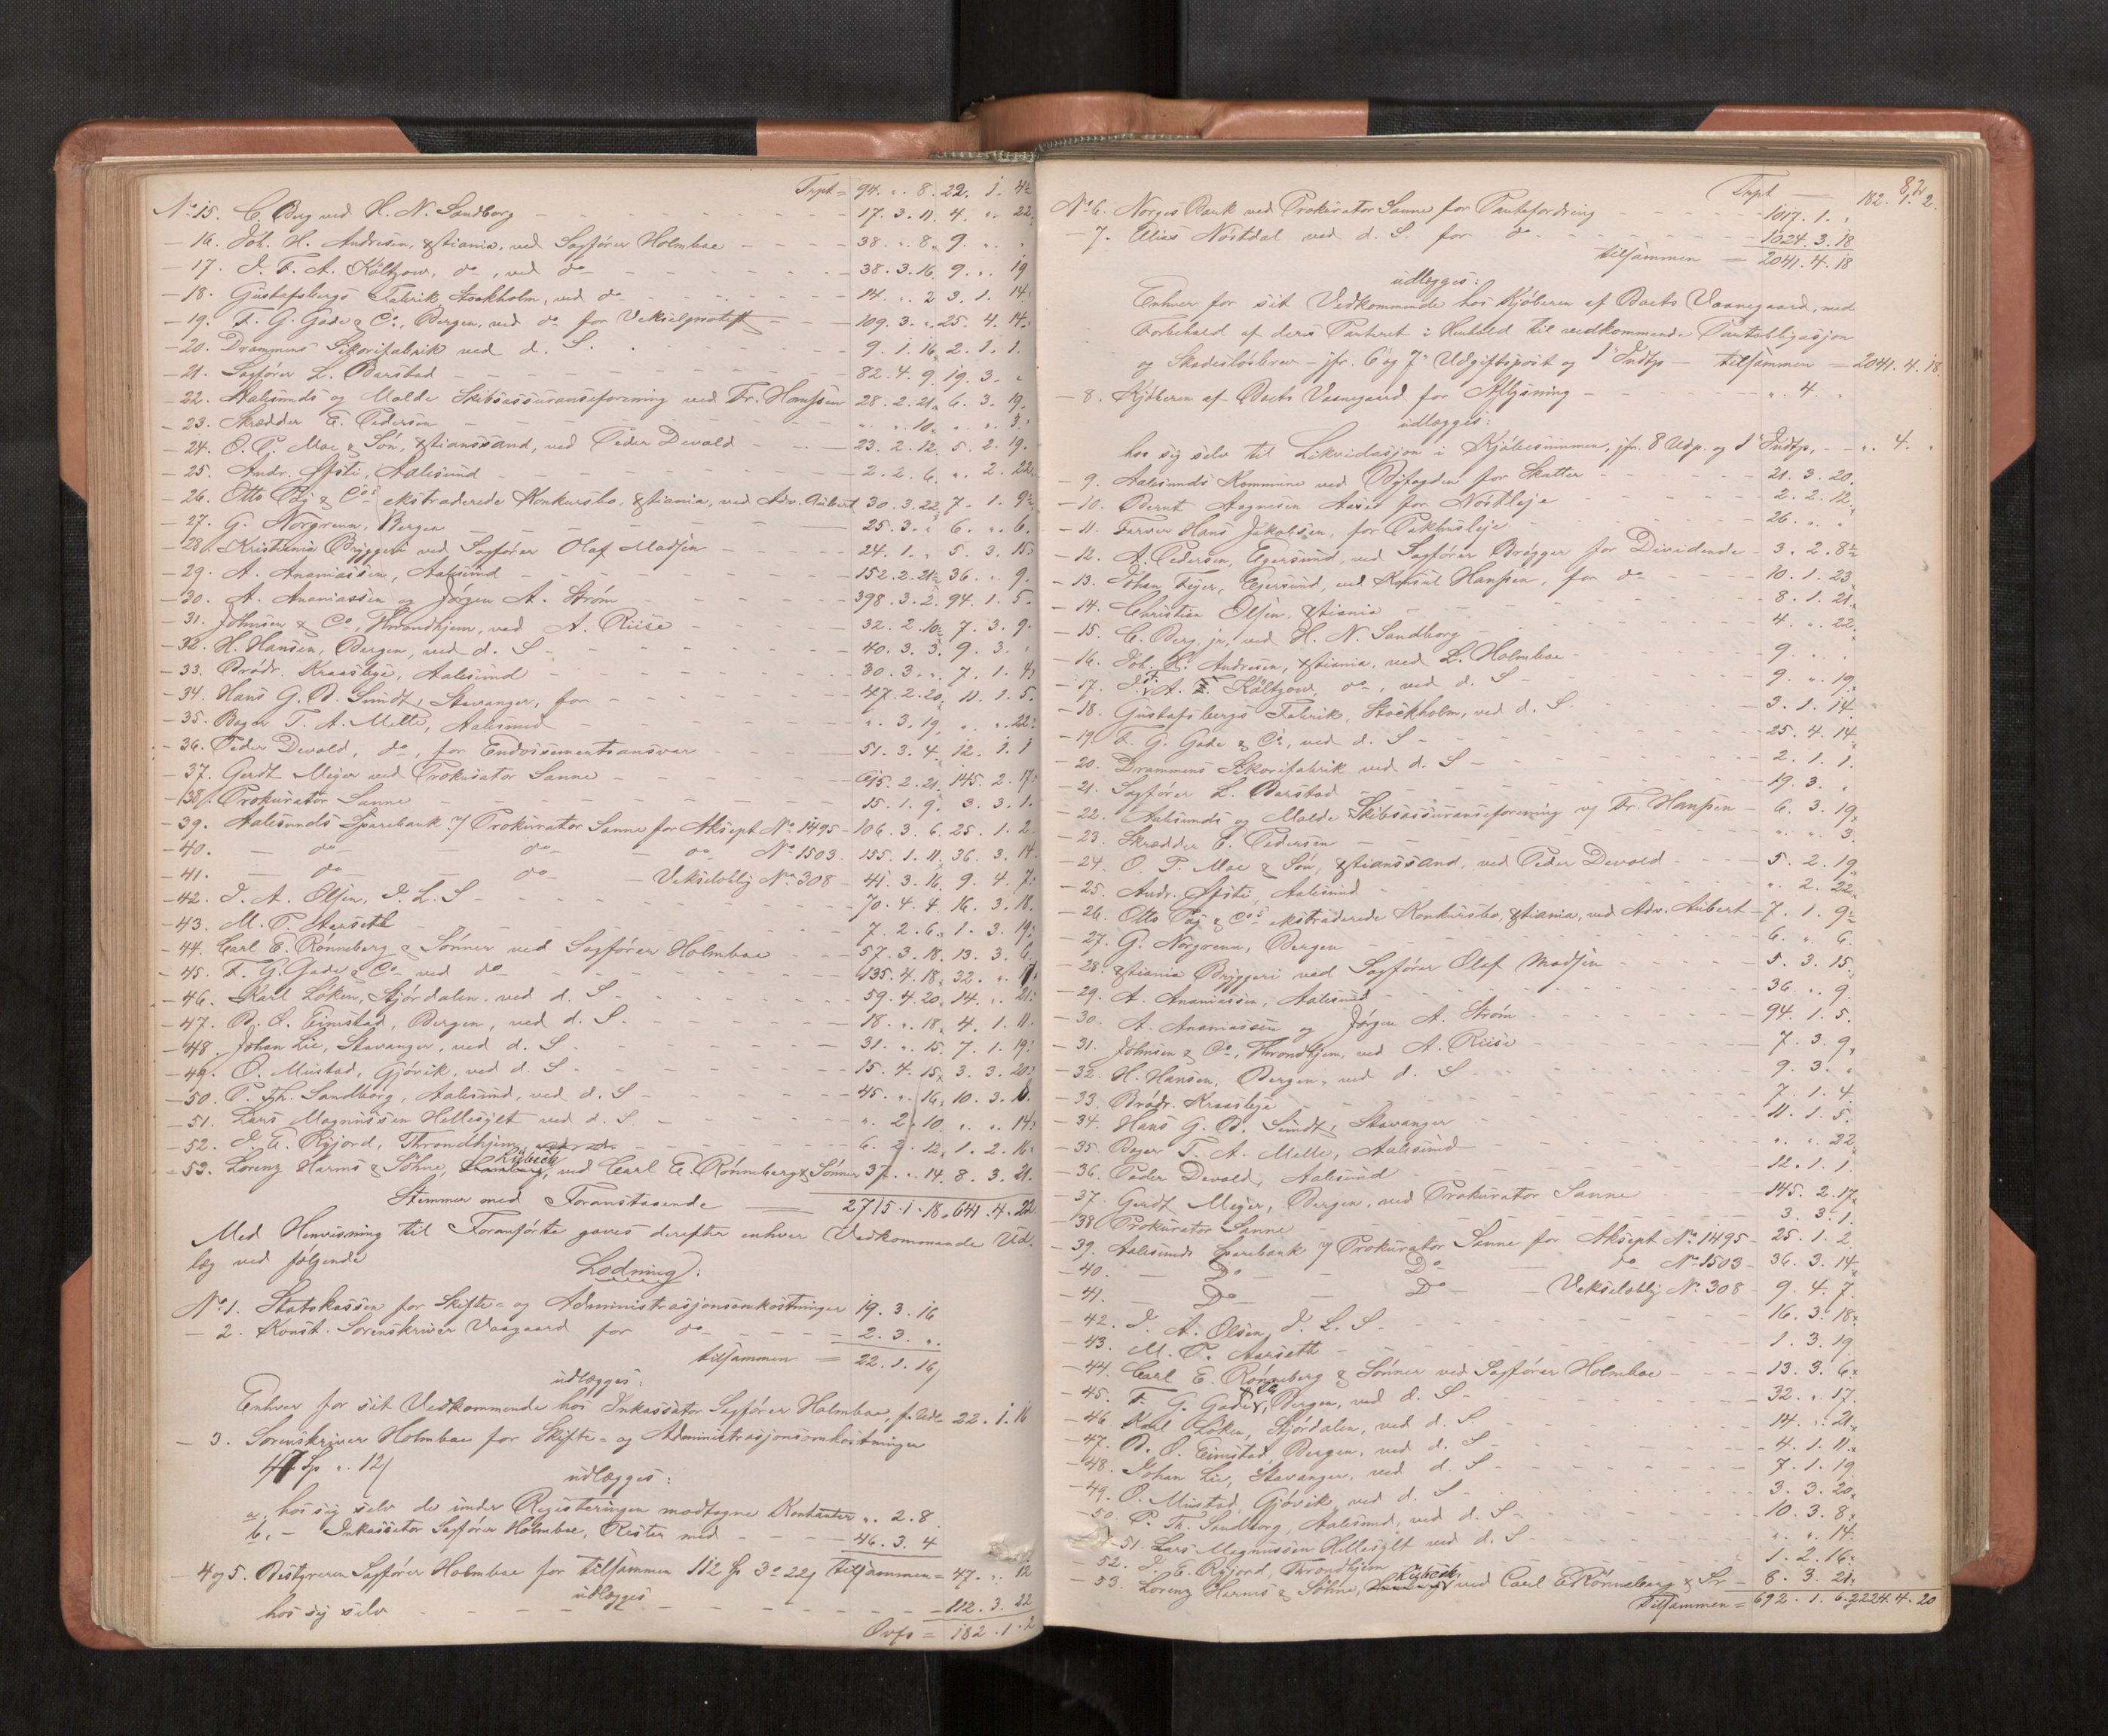 Trpt = 94. „ 8. 22. 1. 4½
No 15. C. Berg ved H. N. Sandborg - 17. 3. 11. 4. „ 22.
- 16. Joh. H. Andresen, Xstiania, ved Sagfører Holmboe - 38. „ 8. 9. „ „
- 17. J. F. A. Költzow, do, ved do - 38. 3. 16. 9. „ 19
- 18. Gustafsbergs Fabrik, Stockholm, ved do - 14. „ 2 3. 1. 14.
- 19. F. G. Gade & Co, Bergen, ved do for Vekselprotest - 109. 3. „ 25. 4. 14.
- 20. Drammens Sikorifabrik ved d. S. - 9. 1. 16. 2. 1. 1.
- 21. Sagfører L. Barstad - 82. 4. 9. 19. 3. „
- 22. Aalesunds og Molde Skibsassuranseforening ved Fr. Hanssen 28. 2. 21. 6. 3. 19.
- 23. Skrædder E. Pedersen - „ „ 10. „ „ 3.
- 24. O. P. Moe & Søn, Xstianssand, ved Peder Devold - 23. 2. 12. 5. 2. 19.
- 25. Andr. Øfsti, Aalesund - 2. 2. 6. „ 2. 22.
- 26. Otto Pay & Co's ekstraderede Konkursbo, Xstiania, ved Adv. Aubert 30. 3. 22. 7. 1. 9½
- 27. G. Norgrenn, Bergen - 25. 3. „ 6. „ 6.
- 28. Kristiania Bryggeri ved Sagfører Olaf Madsen - 24. 1. „ 5. 3. 15.
- 29. A. Ananiassen, Aalesund - 152. 2. 21½ 36. „ 9.
- 30. A. Ananiassen og Jørgen A. Strøm - 398. 3. 2. 94. 1. 5.
- 31. Johnsen & Co, Throndhjem, ved A. Riise - 32. 2. 10½ 7. 3. 9.
- 32. H. Hansen, Bergen, ved d. S - 40. 3. 3. 9. 3. „
- 33. Brødr. Kraasbye, Aalesund - 30. 3. „ 7. 1. 4.
- 34. Hans G. B. Sundt, Stavanger, for - 47. 2. 20. 11. 1. 5.
- 35. Bager T. A. Melle, Aalesund - „ 3. 19. „ „ 22.
- 36. Peder Devold, do, for Endossementsansvar - 51. 3. 4. 12. 1. 1
- 37. Gerdt Meyer ved Prokurator Sanne - 615. 2. 21. 145. 2. 17.
- 38. Prokurator Sanne - 15. 1. 9. 3. 3. 1.
- 39. Aalesunds Sparebank v/ Prokurator Sanne for Aksept No 1495 - 106. 3. 6. 25. 1. 2.
- 40. - do - do - do No 1503. 155. 1. 11. 36. 3. 14.
- 41. - do - do - Vekseloblig No 308 - 41. 3. 16. 9. 4. 7.
- 42. J. A. Olsen, J. L. S - 70. 4. 4. 16. 3. 18.
- 43. M. P. Aarseth - 7. 2. 6. 1. 3. 19.
- 44. Carl E. Rønneberg & Sønner ved Sagfører Holmboe - 57. 3. 18. 13. 3. 6.
- 45. F. G. Gade & Co ved do - 135. 4. 18. 32. „ 17.
- 46. Karl Løken, Stjørdalen, ved d. S - 59. 4. 20. 14. „ 21.
- 47. B. O. Eimstad, Bergen, ved d. S. - 18. „ 18. 4. 1. 11.
- 48. Johan Lie, Stavanger, ved d. S - 31. „ 15. 7. 1. 19.
- 49. O. Mustad, Gjøvik, ved d. S - 15. 4. 15. 3. 3. 20.
- 50. P. Th. Sandborg, Aalesund, ved d. S - 45. „ 16. 10. 3. 8.
- 51. Lars Magnussen Hellesylt ved d. S. - „ 2 10. „ „ 14.
- 52. J. E. Ryjord, Throndhjem, ved do - 6. 2. 12. 1. 2. 16.
- 53. Lorenz Harms & Söhne, Hamburg, Lübeck, ved Carl E. Rønneberg & Sønner 37. „ 14. 8. 3. 21.
Stemmer med Foranstaaende - 2715. 1. 18. 641. 4. 22
Med Henvisning til Foranførte gaves derefter enhver Vedkommende Ud-
læg ved følgende
Lodning:
No 1. Statskassen for Skifte- og Administrasjonsomkostninger 19. 3. 16
- 2. Konst. Sorenskriver Vaagaard for do - 2. 3. „
tilsammen = 22. 1. 16
udlægges:
Enhver for sit Vedkommende hos Inkassator Sagfører Holmboe, f. Udl. 22. 1. 16
- 3. Sorenskriver Holmboe for Skifte- og Administrasjonsomkostninger
47 Sp „ 12
udlægges:
a. hos sig selv de under Registeringen modtagne Kontanter „ 2. 8
b. - Inkassator Sagfører Holmboe, Resten med - 46. 3. 4
tilsammen = 47. „ 12
- 4 og 5. Bestyreren Sagfører Holmboe for tilsammen 112 Sp 3 22
udlægges
hos sig selv - 112. 3. 22
Ovfs = 182. 1. 2
82
Trpt - 182. 1. 2.
No 6. Norges Bank ved Prokurator Sanne for Pantefordring - 1017. 1. „
- 7. Elias Nøstdal ved d. S. for do - 1024. 3. 18
tilsammen = 2041. 4. 18
udlægges:
Enhver for sit Vedkommende hos Kjøberen af Boets Vaanegaard, med
Forbehold af deres Panteret i Henhold til vedkommende Panteobligasjon
og Skadesløsbrev - jfr. 6 og 7 Udgiftspost og 1 Indtp - tilsammen = 2041. 4. 18.
- 8. Kjøberen af Boets Vaanegaard for Aflysning - „ 4. „
udlægges:
hos sig selv til Likvidasjon i Kjøbesummen, jfr. 8 Udp. og 1 Indtp. - „ 4. „
- 9. Aalesunds Kommune ved Byfogden for Skatter - 21. 3. 20.
- 10. Bernt Aagnesen Aase for Nøstleje - 2. 2. 12.
- 11. Farver Hans Jakobsen, for Pakhusleje - 26. „ „
- 12. A. Pedersen, Egersund, ved Sagfører Brøgger for Dividende - 3. 2. 8½
- 13. Johan Feyer, Egersund, ved Konsul Hanssen, for do - 10. 1. 23
- 14. Christian Olsen, Xstiania - 8. 1. 21.
- 15. C. Berg jr. ved H. N. Sandborg - 4. „ 22.
- 16. Joh. H. Andresen, Xstiania, ved L. Holmboe - 9. „ „
- 17. J. F. A. Költzow, do, ved d. S - 9. „ 19.
- 18. Gustafsbergs Fabrik, Stockholm, ved d. S. - 3. 1. 14
- 19 F. G. Gade & Co, ved d. S - 25. 4. 14.
- 20. Drammens Sikorifabrik ved d. S - 2. 1. 1.
- 21. Sagfører L. Barstad - 19. 3. „
- 22. Aalesunds og Molde Skibsassuranseforening v/ Fr. Hanssen - 6. 3. 19.
- 23. Skrædder E. Pedersen - „ „ 3.
- 24. O. P. Moe & Søn, Xstianssand, ved Peder Devold - 5. 2. 19.
- 25. Andr. Øfsti, Aalesund - „ 2. 22.
- 26. Otto Pay & Co's ekstraderede Konkursbo, Xstiania, ved Adv. Aubert - 7. 1. 9½
- 27. G. Norgrenn, Bergen - 6. „ 6.
- 28. Xstiania Bryggeri ved Sagfører Olaf Madsen - 5. 3. 15.
- 29. A. Ananiassen, Aalesund - 36. „ 9.
- 30. A. Ananiassen og Jørgen A. Strøm - 94. 1. 5.
- 31. Johnsen & Co, Throndhjem, ved A. Riise - 7. 3. 9.
- 32. H. Hansen, Bergen, ved d. S - 9. 3. „
- 33. Brødr. Kraasbye - 7. 1. 4.
- 34. Hans G. B. Sundt, Stavanger - 11. 1. 5.
- 35. Bager T. A. Melle, Aalesund - „ „ 22
- 36. Peder Devold, Aalesund - 12. 1. 1.
- 37. Gerdt Meyer, Bergen, ved Prokurator Sanne - 145. 2. 17.
- 38 Prokurator Sanne - 3. 3. 1.
- 39. Aalesunds Sparebank v/ Prokurator Sanne for Aksept No 1495 - 25. 1. 2
- 40. - Do - Do - do No 1503 - 36. 3. 14
- 41. - Do - Do - Vekseloblig No 308 - 9. 4. 7.
- 42. J. A. Olsen, J. L. S. - 16. 3. 18.
- 43. M. P. Aarseth - 1. 3. 19
- 44. Carl E. Rønneberg & Sønner ved Sagfører Holmboe - 13. 3. 6.
- 45. F. G. Gade & Co, Bergen, ved d. S - 32. „ 17.
- 46 Karl Løken, Stjørdalen, ved d. S. - 14. „ 21.
- 47. B. O. Eimstad, Bergen, ved d. S - 4. 1. 11.
- 48. Johan Lie, Stavanger, ved d. S - 7. 1. 19
- 49. O. Mustad, Gjøvik, ved d. S - 3. 3. 20.
- 50. P. Th. Sandborg, Aalesund, ved d. S - 10. 3. 8.
- 51. Lars Magnussen Hellesylt ved d. S - „ „ 14.
- 52. J. E. Ryjord, Throndhjem - 1. 2. 16.
- 53. Lorenz Harms & Söhne, Hamburg, Lübeck, ved Carl E Rønneberg & Sr - 8. 3. 21.
tilsammen = 692. 1. 6. 2224. 4. 20